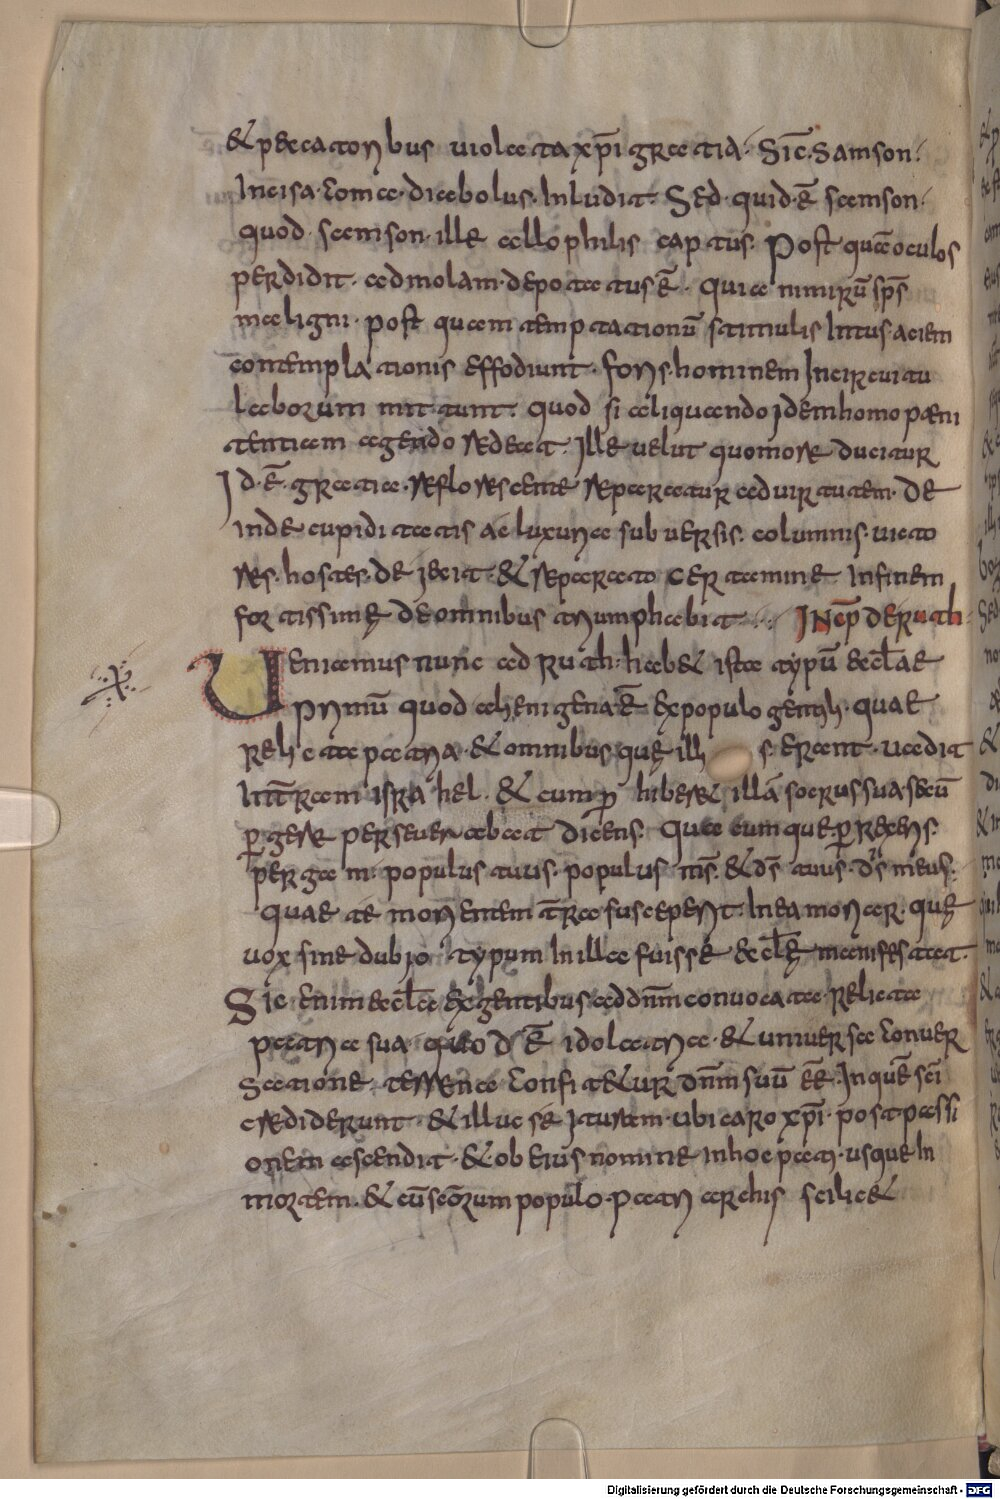 & peccatoribus uiolata xp̄i gratia. Sic. Samson.
Incisa. coma. diabolus. Inludit. Sed. quid. ē samson.
quod. samson. ille allophilis captus. Post quā oculos
perdidit. ad molam. deputatus ē. quia nimirū sp̄s
maligni. post quam temptationū stimulis Intus aciem
contemplationis effodiunt. foris. hominem In circuitu
laborum mittunt. quod si aliquando Idem homo pæni
tentiam agendo redeat. Ille uelut quomore ducitur
Id. ē. gratia. reflorescente reparatur ad uirtutem. de
inde cupiditatis ac luxuriae subuersis. columnis. uicto
res. hostes. deIecit. & reparato certamine In finem
fortissimę de omnibus triumphabit. INcp̄ de ruth
Ueniamus nunc ad ruth. habet ista typū aeccl̄ae
Primū quod alienigena ē ex populo gentili. quae
relicta patria. & omnibus quę illi s erant. uadit
In tr̄ram israhel. & cum p hiberet illā socrus sua secū
pergere perseuerabat dicens. Quaecumque. perrexeris.
pergam. populus tuus. populus m̄s. & d̄s tuus. d̄s meus.
quae te morientem tr̄ra susceperit. In ea moriar. quę
uox sine dubio typum In illa fuisse aeccl̄ę manifestat.
Sic enim aeccl̄a ex gentibus ad dn̄m conuocata. relicta
patria sua quod ē idolatria. & uniuersa conuer
satione. terrena confitetur dn̄m suū ēē. In quē sc̄i
crediderunt. & illuc se Iturem. ubi caro xp̄i. post passi
onem ascendit. & ob eius nomine in hoc pati. usque In
mortem. & cū sc̄orum populo. patriarchis scilicet
Digitalisierung gefördert durch die Deutsche Forschungsgemeinschaft - DFG